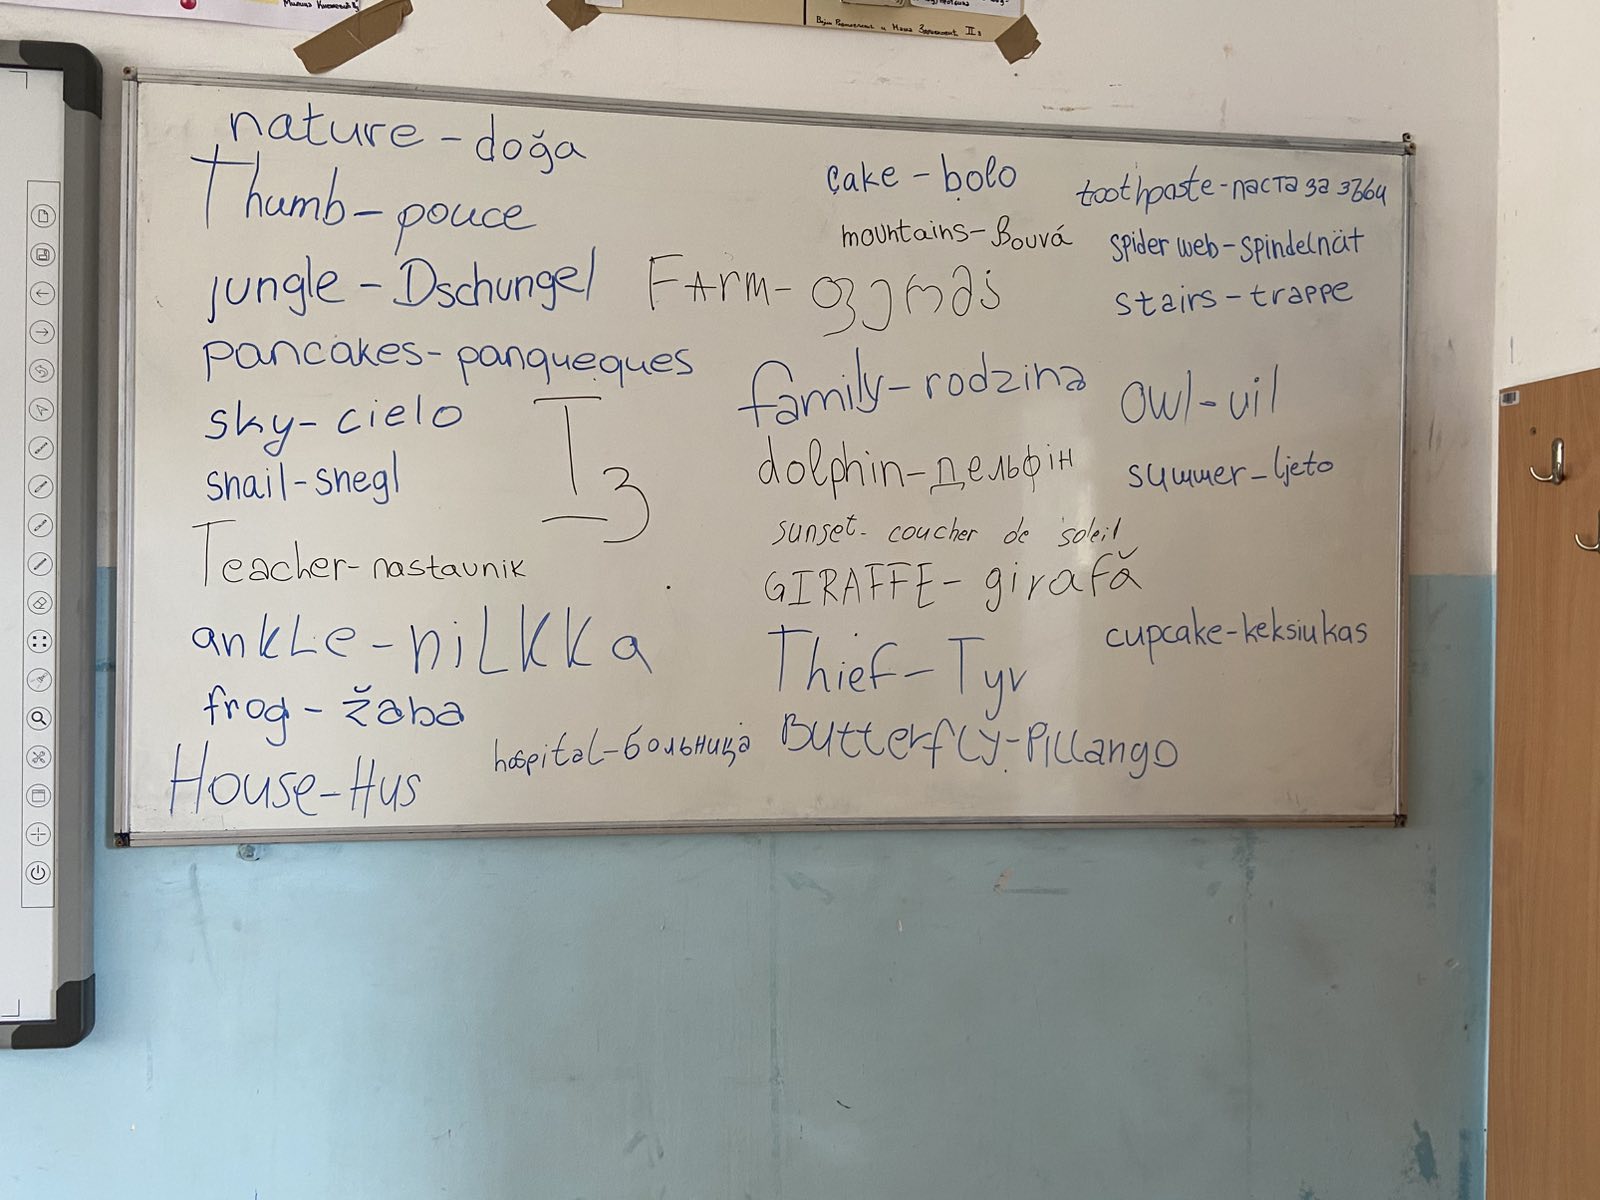 nature – doğa
Thumb – pouce
jungle – Dschungel
pancakes – panqueques
sky – cielo
snail – snegl
Teacher – nastavnik
ankLe – niLKKa
frog – žaba
House – Hus
I3
hospital – больница
cake – bolo
mountains – βουνά
FArm – ფერმა
family – rodzina
dolphin – дельфін
sunset - coucher de soleil
GIRAFFE – girafă
Thief – Tyv
ButterfLy – PiLLango
toothpaste – паста за зъби
spider web – spindelnät
stairs – trappe
owl – uil
summer – ljeto
cupcake – keksiukas